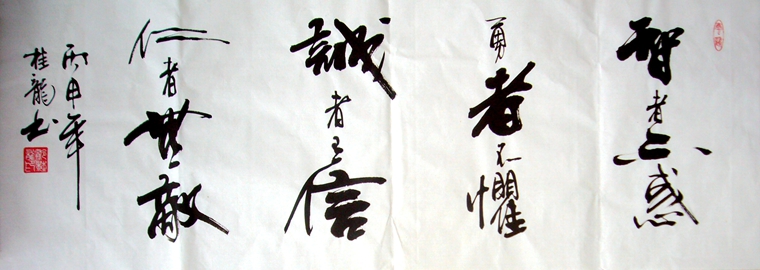 智者不惑
勇者不懼
誠者有信
仁者無敵
丙申年
桂龍书